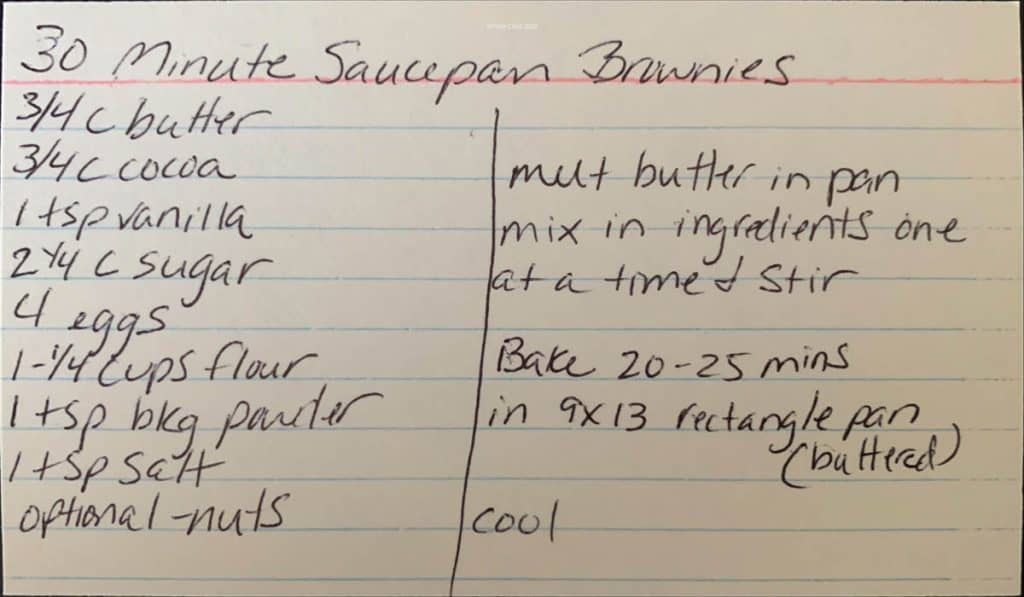 30 Minute Saucepan Brownies
3/4 c butter
3/4 c cocoa
1 tsp vanilla
2 1/4 c sugar
4 eggs
1-1/4 cups flour
1 tsp bkg powder
1 tsp salt
optional-nuts
melt butter in pan
mix in ingredients one
at a time & stir
Bake 20-25 mins
in 9x13 rectangle pan
(buttered)
cool